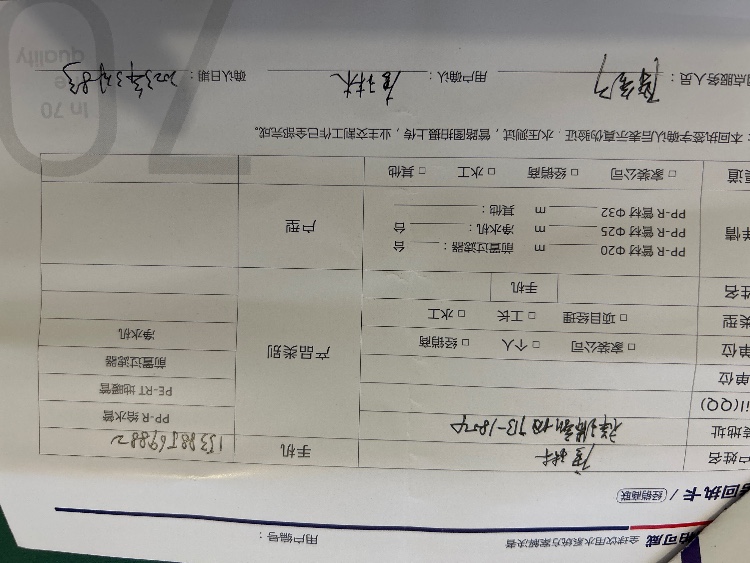 柏可威 全球饮用水系统方案解决者 用户编号：
回执卡 / 经销商联
户姓名 手机 15385569882
装地址
il(QQ) PP-R 给水管
单位 PE-RT 地暖管
单位 □ 家装公司 □ 个人 □ 经销商 产品类别 前置过滤器
类型 □ 项目经理 □ 工长 □ 水工 净水机
姓名 手机
详情 PP-R 管材 Φ20 m 前置过滤器： 台 户型
PP-R 管材 Φ25 m 净水机： 台
PP-R 管材 Φ32 m 其他：
渠道 □ 家装公司 □ 经销商 □ 水工 □ 其他
：本回执签字确认后表示真伪验证，水压测试，管路图拍摄上传，业主交割工作已全部完成。
点服务人员： 用户确认： 确认日期：2023年3月8号
In 70
quality
70